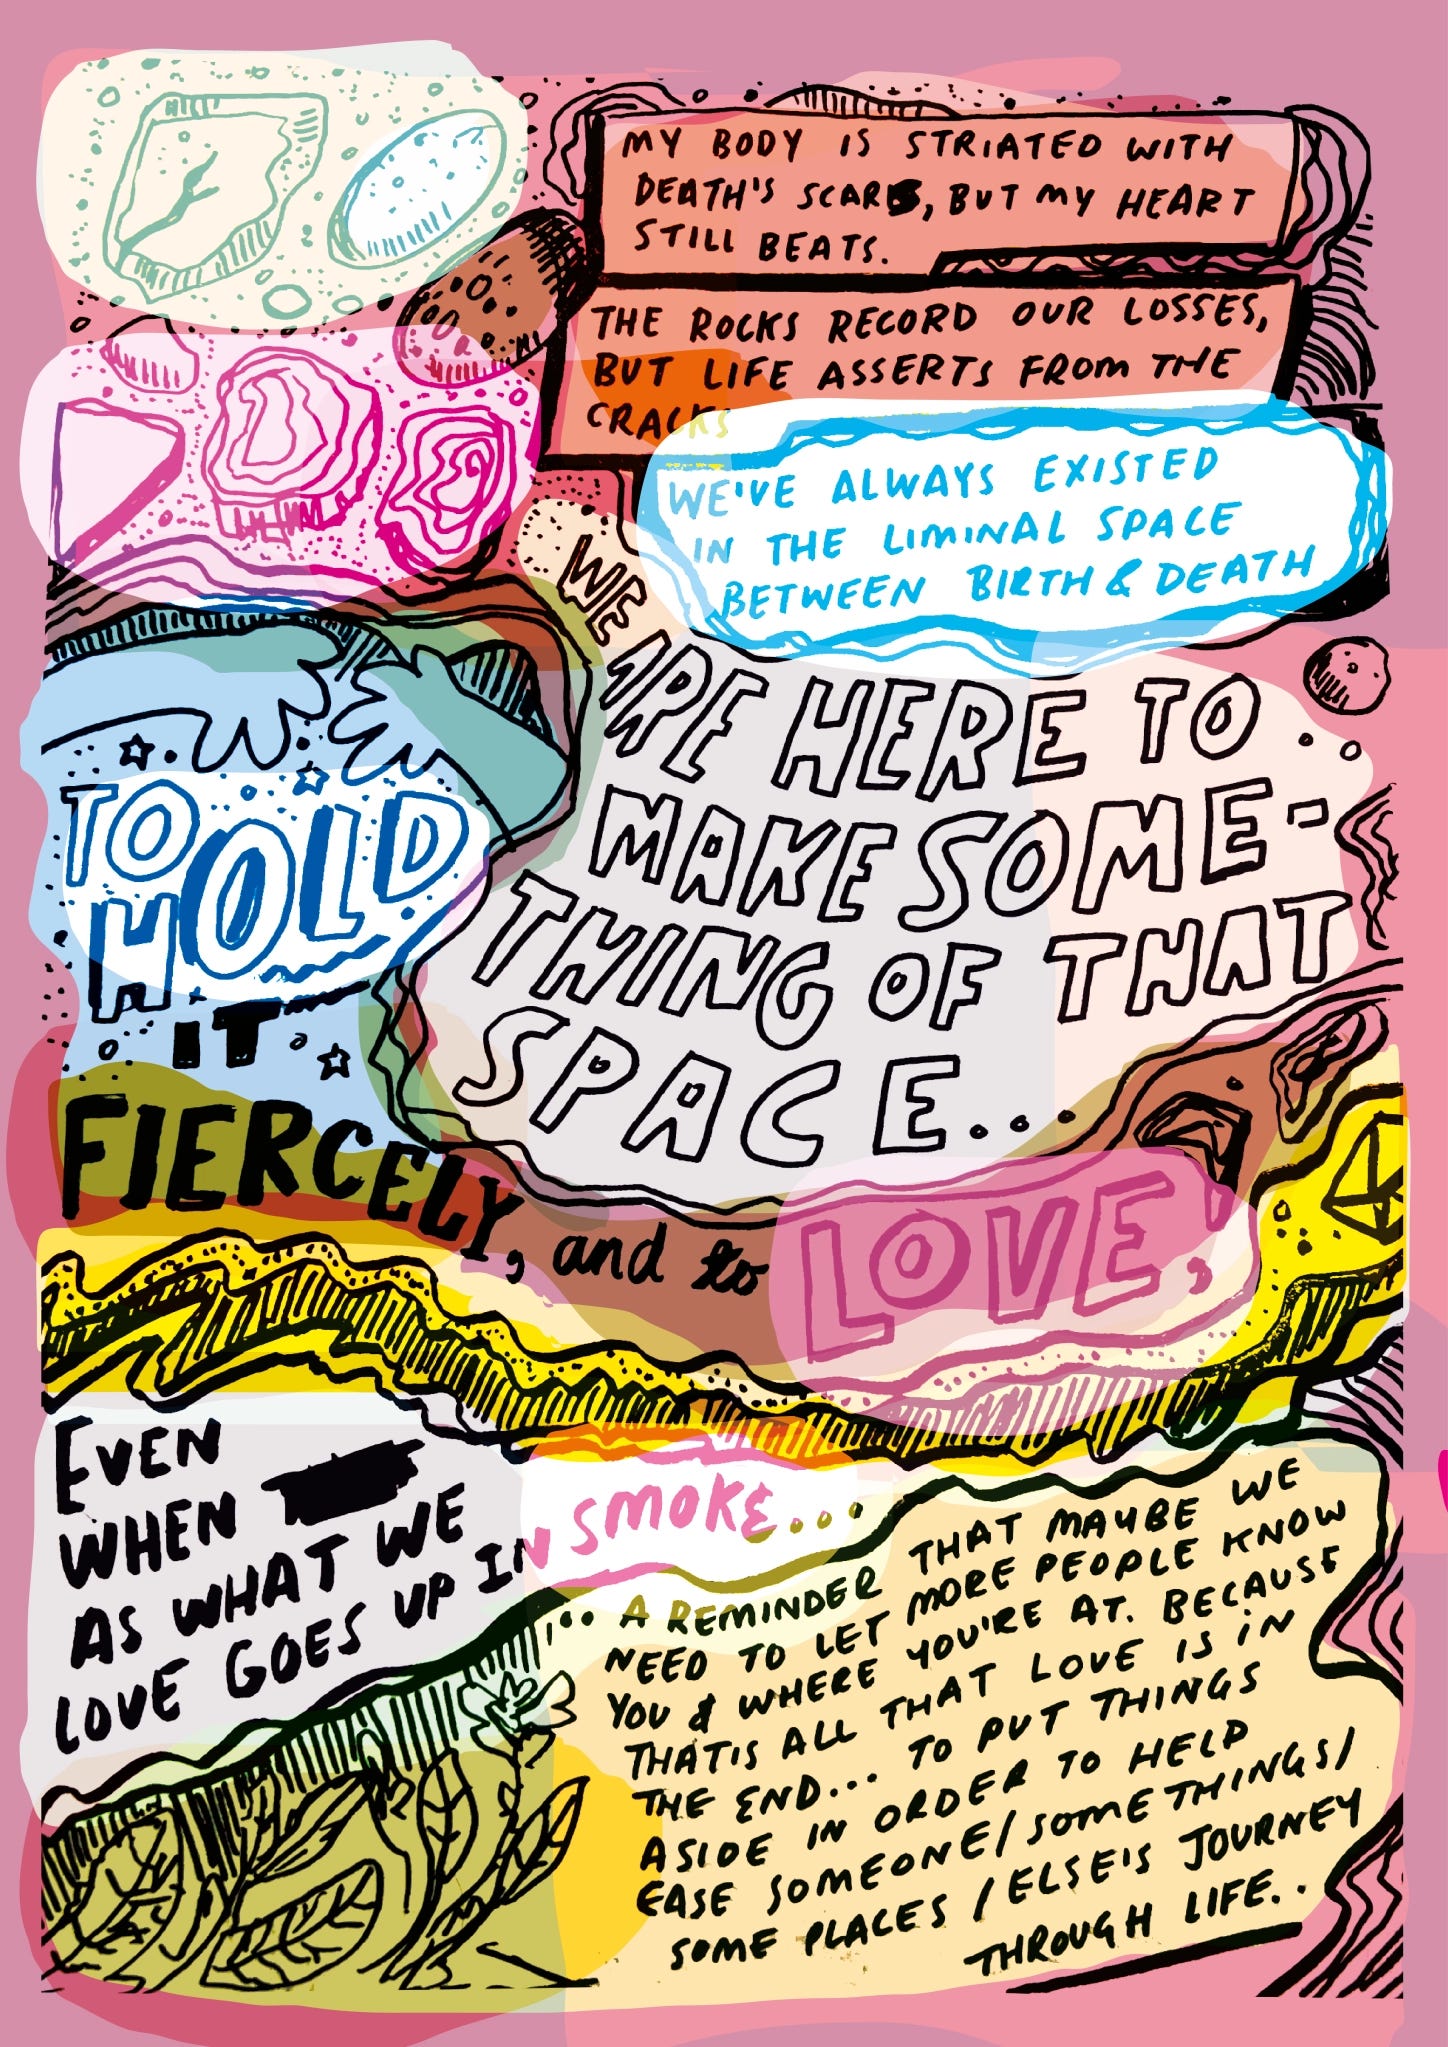 MY BODY IS STRIATED WITH
DEATH'S SCARS, BUT MY HEART
STILL BEATS.
THE ROCKS RECORD OUR LOSSES,
BUT LIFE ASSERTS FROM THE
CRACKS
WE'VE ALWAYS EXISTED
IN THE LIMINAL SPACE
BETWEEN BIRTH & DEATH
WE ARE HERE TO
MAKE SOME-
THING OF THAT
SPACE...
TO
HOLD
IT
FIERCELY, and to LOVE,
EVEN
WHEN
AS WHAT WE
LOVE GOES UP IN SMOKE...
... A REMINDER THAT MAYBE WE
NEED TO LET MORE PEOPLE KNOW
YOU & WHERE YOU'RE AT. BECAUSE
THAT'S ALL THAT LOVE IS IN
THE END... TO PUT THINGS
ASIDE IN ORDER TO HELP
EASE SOMEONE/SOMETHINGS/
SOME PLACES/ELSE'S JOURNEY
THROUGH LIFE..